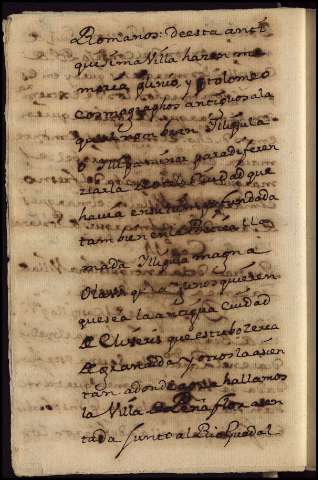 Romanos: de esta anti
quisima Villa hazen me
moria plinio, y ptolomeo
Cosmographos antiguos a la
qual nombran Illipula
o Illipa minor para diferen
ziarla de otra Ciudad que
havia en su tiempo fundada
tambien en la Betica lla
mada Illipula magna
que algunos quieren
que sea la antigua Ciudad
de Eliveris que estubo zerca
de granada y otros la asien
tan adonde aora hallamos
la Villa de Peñaflor asen
tada junto al Rio Guadal